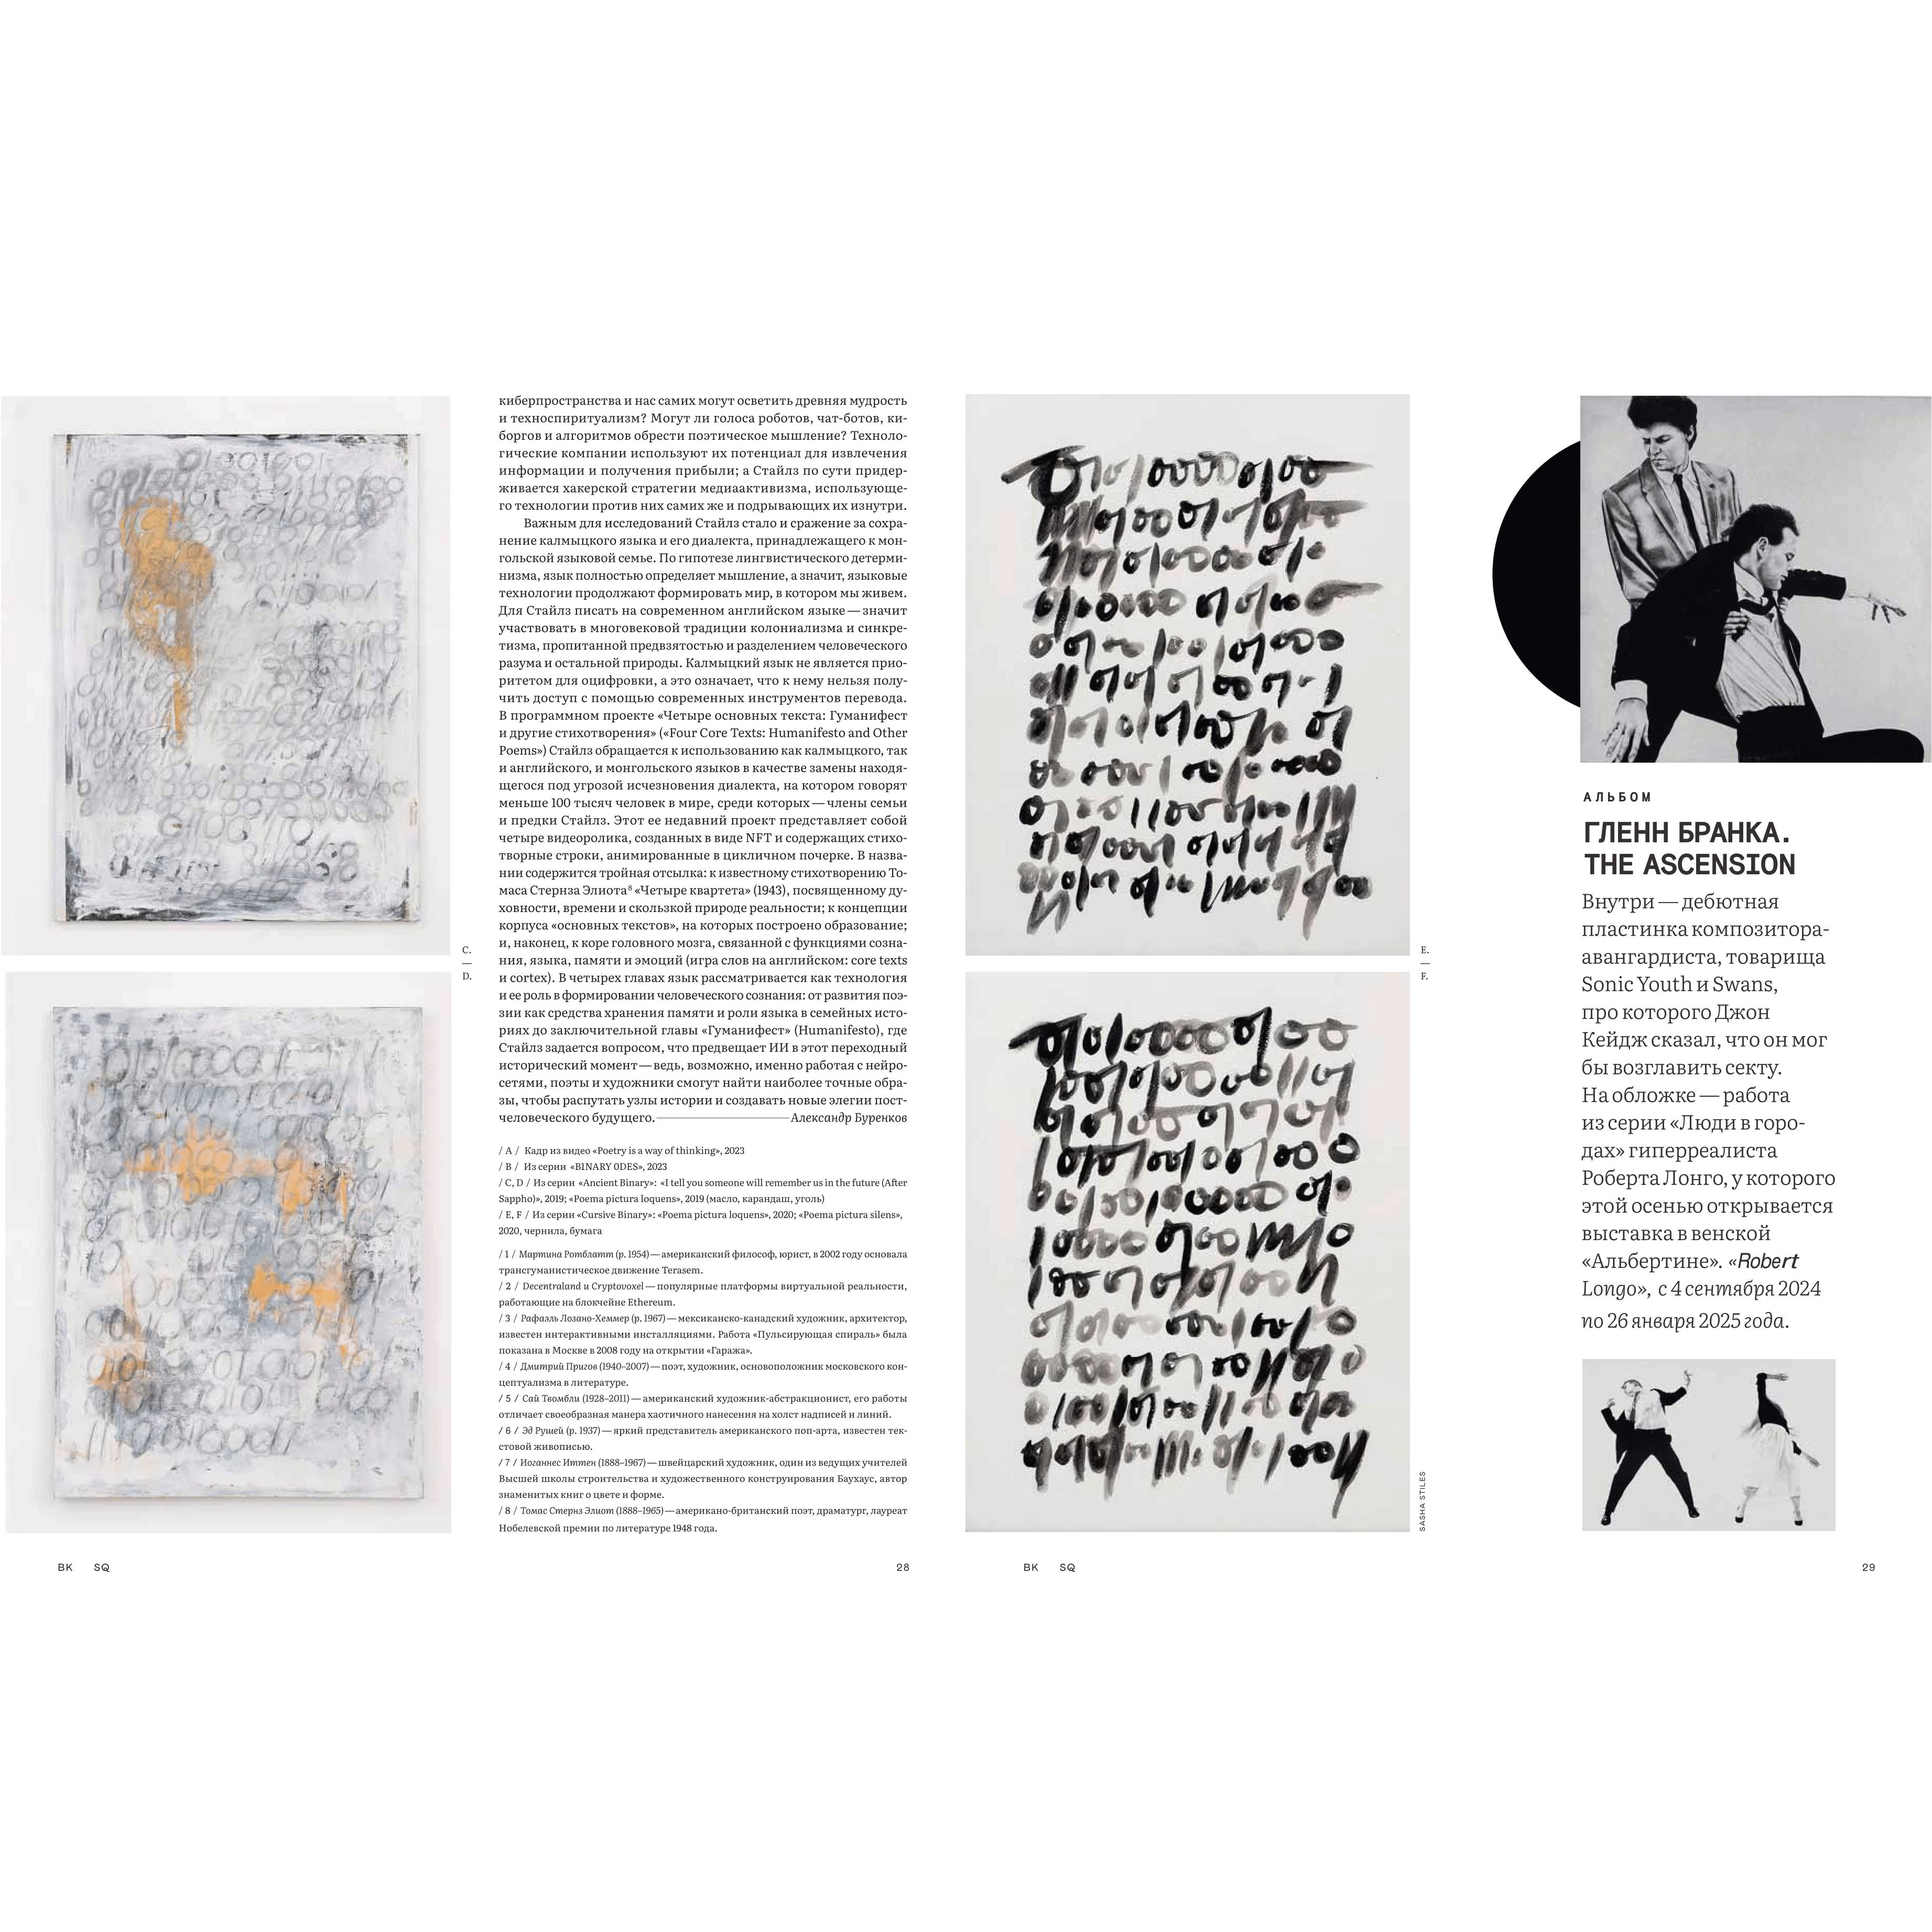 киберпространства и нас самих могут осветить древняя мудрость
и техноспиритуализм? Могут ли голоса роботов, чат-ботов, ки-
боргов и алгоритмов обрести поэтическое мышление? Техноло-
гические компании используют их потенциал для извлечения
информации и получения прибыли; а Стайлз по сути придер-
живается хакерской стратегии медиаактивизма, использующе-
го технологии против них самих же и подрывающих их изнутри.
Важным для исследований Стайлз стало и сражение за сохра-
нение калмыцкого языка и его диалекта, принадлежащего к мон-
гольской языковой семье. По гипотезе лингвистического детерми-
низма, язык полностью определяет мышление, а значит, языковые
технологии продолжают формировать мир, в котором мы живем.
Для Стайлз писать на современном английском языке — значит
участвовать в многовековой традиции колониализма и синкре-
тизма, пропитанной предвзятостью и разделением человеческого
разума и остальной природы. Калмыцкий язык не является прио-
ритетом для оцифровки, а это означает, что к нему нельзя полу-
чить доступ с помощью современных инструментов перевода.
В программном проекте «Четыре основных текста: Гуманифест
и другие стихотворения» («Four Core Texts: Humanifesto and Other
Poems») Стайлз обращается к использованию как калмыцкого, так
и английского, и монгольского языков в качестве замены находя-
щегося под угрозой исчезновения диалекта, на котором говорят
меньше 100 тысяч человек в мире, среди которых — члены семьи
и предки Стайлз. Этот ее недавний проект представляет собой
четыре видеоролика, созданных в виде NFT и содержащих стихо-
творные строки, анимированные в цикличном почерке. В назва-
нии содержится тройная отсылка: к известному стихотворению То-
маса Стернза Элиота⁸ «Четыре квартета» (1943), посвященному ду-
ховности, времени и скользкой природе реальности; к концепции
корпуса «основных текстов», на которых построено образование;
и, наконец, к коре головного мозга, связанной с функциями созна-
ния, языка, памяти и эмоций (игра слов на английском: core texts
и cortex). В четырех главах язык рассматривается как технология
и ее роль в формировании человеческого сознания: от развития поэ-
зии как средства хранения памяти и роли языка в семейных исто-
риях до заключительной главы «Гуманифест» (Humanifesto), где
Стайлз задается вопросом, что предвещает ИИ в этот переходный
исторический момент — ведь, возможно, именно работая с нейро-
сетями, поэты и художники смогут найти наиболее точные обра-
зы, чтобы распутать узлы истории и создавать новые элегии пост-
человеческого будущего. — Александр Буренков
/ A / Кадр из видео «Poetry is a way of thinking», 2023
/ B / Из серии «B1NARY 0DES», 2023
/ C, D / Из серии «Ancient Binary»: «I tell you someone will remember us in the future (After
Sappho)», 2019; «Poema pictura loquens», 2019 (масло, карандаш, уголь)
/ E, F / Из серии «Cursive Binary»: «Poema pictura loquens», 2020; «Poema pictura silens»,
2020, чернила, бумага
/ 1 / Мартина Ротблатт (р. 1954) — американский философ, юрист, в 2002 году основала
трансгуманистическое движение Terasem.
/ 2 / Decentraland и Cryptovoxel — популярные платформы виртуальной реальности,
работающие на блокчейне Ethereum.
/ 3 / Рафаэль Лозано-Хеммер (р. 1967) — мексиканско-канадский художник, архитектор,
известен интерактивными инсталляциями. Работа «Пульсирующая спираль» была
показана в Москве в 2008 году на открытии «Гаража».
/ 4 / Дмитрий Пригов (1940–2007) — поэт, художник, основоположник московского кон-
цептуализма в литературе.
/ 5 / Сай Твомбли (1928–2011) — американский художник-абстракционист, его работы
отличает своеобразная манера хаотичного нанесения на холст надписей и линий.
/ 6 / Эд Рушей (р. 1937) — яркий представитель американского поп-арта, известен тек-
стовой живописью.
/ 7 / Иоганнес Иттен (1888–1967) — швейцарский художник, один из ведущих учителей
Высшей школы строительства и художественного конструирования Баухаус, автор
знаменитых книг о цвете и форме.
/ 8 / Томас Стернз Элиот (1888–1965) — американо-британский поэт, драматург, лауреат
Нобелевской премии по литературе 1948 года.
C.
—
D.
BK SQ
28
E.
—
F.
SASHA STILES
АЛЬБОМ
ГЛЕНН БРАНКА.
THE ASCENSION
Внутри — дебютная
пластинка композитора-
авангардиста, товарища
Sonic Youth и Swans,
про которого Джон
Кейдж сказал, что он мог
бы возглавить секту.
На обложке — работа
из серии «Люди в горо-
дах» гиперреалиста
Роберта Лонго, у которого
этой осенью открывается
выставка в венской
«Альбертине». «Robert
Longo», с 4 сентября 2024
по 26 января 2025 года.
BK SQ
29